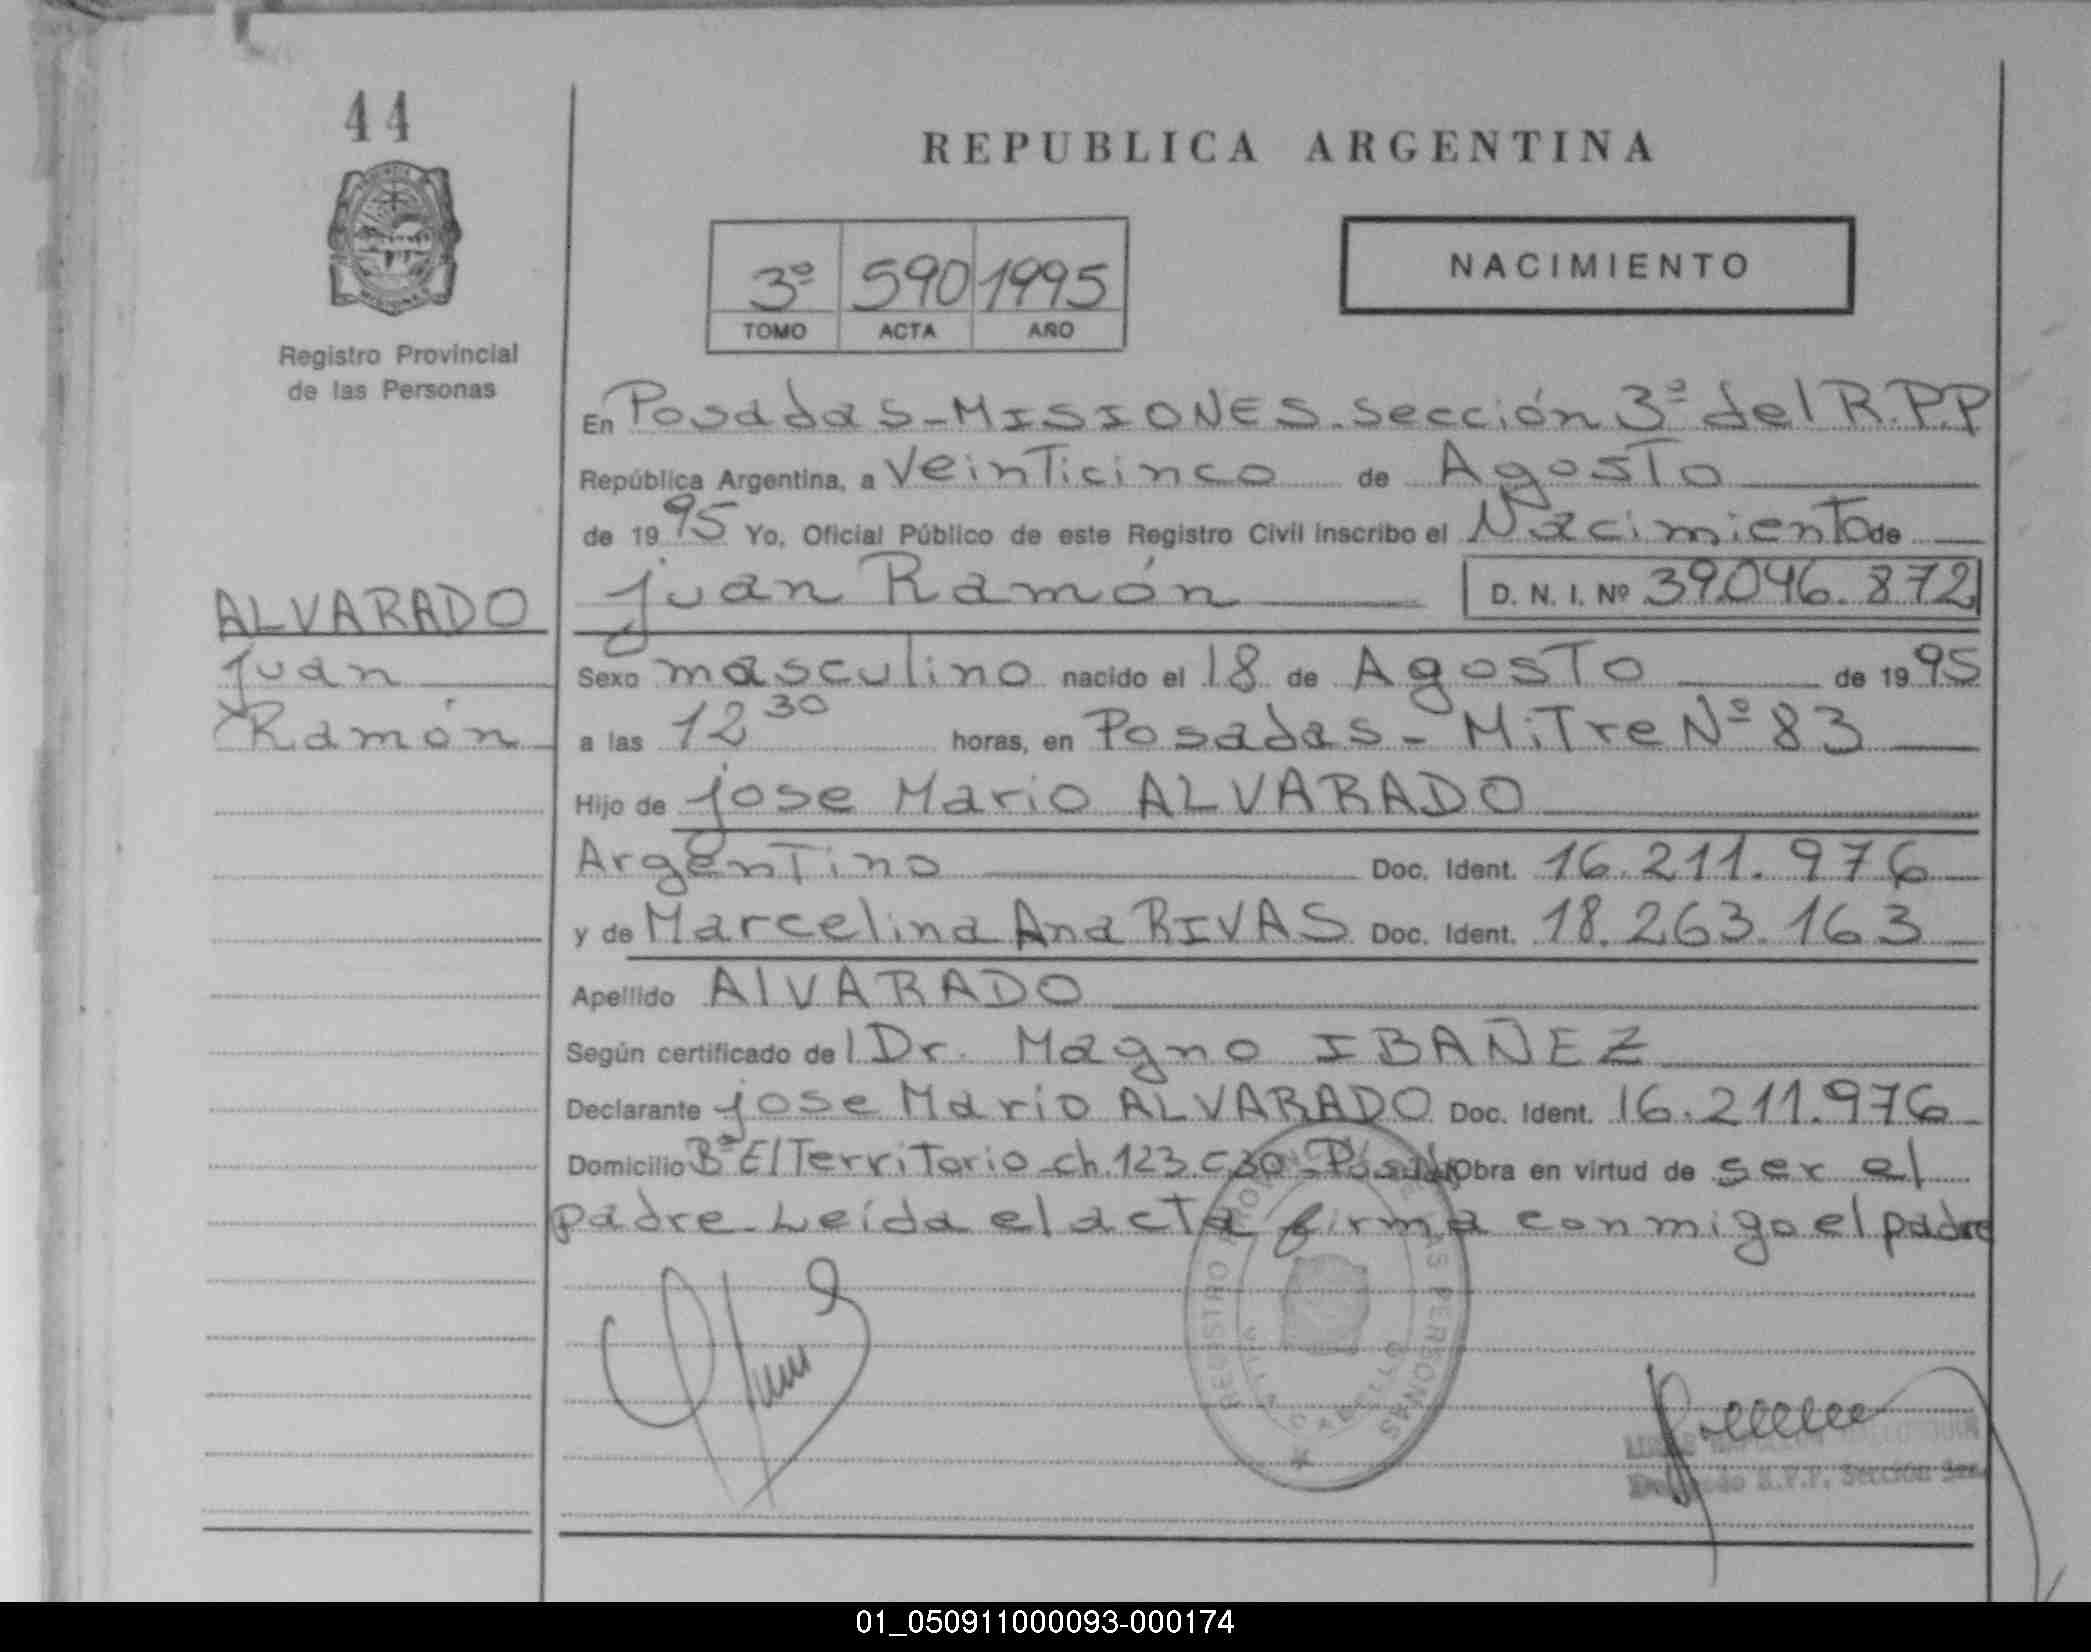 44
REPUBLICA ARGENTINA
3º 590 1995
TOMO ACTA AÑO
NACIMIENTO
Registro Provincial
de las Personas
En Posadas-MISIONES. sección 3ª del R.P.P
República Argentina, a veinticinco de Agosto
de 1995 Yo, Oficial Público de este Registro Civil inscribo el Nacimiento de
juan Ramón D. N. I. Nº 39.046.872
ALVARADO
juan
Ramón
Sexo masculino nacido el 18 de Agosto de 1995
a las 12 30 horas, en Posadas - Mitre Nº 83
Hijo de jose Mario ALVARADO
Argentino Doc. Ident. 16.211.976
y de Marcelina Ana RIVAS Doc. Ident. 18.263.163
Apellido AlVARADO
Según certificado del Dr. Magno IBAÑEZ
Declarante jose Mario ALVARADO Doc. Ident. 16.211.976
Domicilio Bº El Territorio ch. 123 c,30 - Obra en virtud de ser el
padre. Leída el acta firma conmigo el padre
REGISTRO PERSONAS
VILLA CABELLO
R.P.P. Sección
01_050911000093-000174